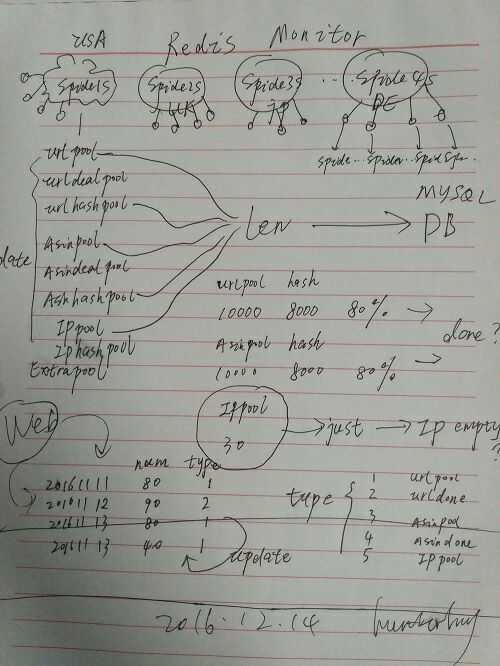 USA Redis Monitor
Spider1s Spider2s Spider3s ... Spider4s
UK JP DE
Spide... Spider... Spid Spider...
url pool
urldeal pool
urlhashpool
Asinpool
Asindeal pool
Asinhashpool
IPpool
IPhashpool
Extrapool
date
len
MYSQL
DB
urlpool hash
10000 8000 80%
Asinpool hash
10000 8000 80%
done?
IPpool
30
just IP empty
?
Web
num type
20161111 80 1
20161112 90 2
20161113 80 1
20161113 40 1
update
type
1 urlpool
2 urldone
3 Asinpool
4 Asindone
5 IPpool
2016.12.14